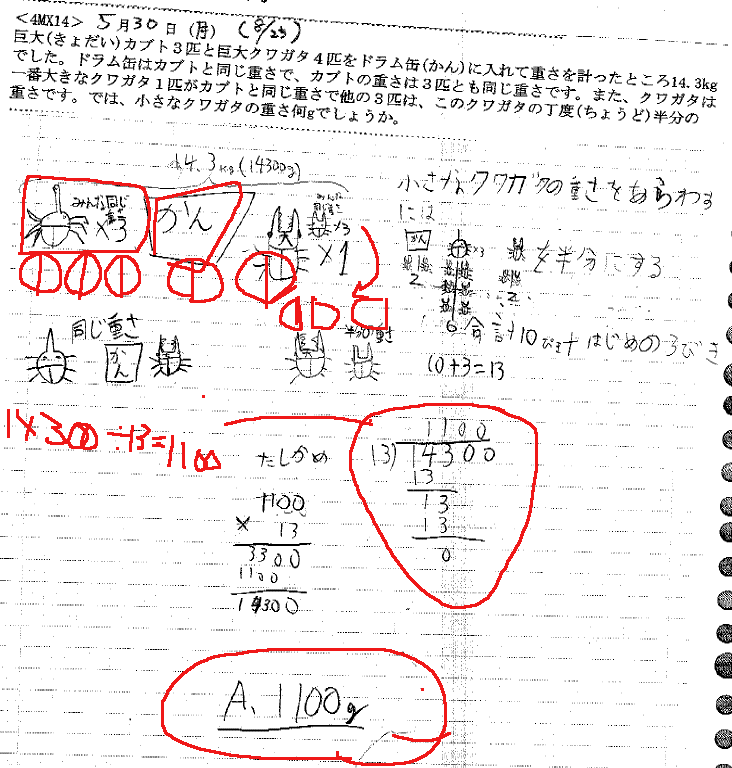 <4MX14> 5月30日(月) (8/23)
巨大(きょだい)カブト3匹と巨大クワガタ4匹をドラム缶(かん)に入れて重さを計ったところ14.3kg
でした。ドラム缶はカブトと同じ重さで、カブトの重さは3匹とも同じ重さです。また、クワガタは
一番大きなクワガタ1匹がカブトと同じ重さで他の3匹は、このクワガタの丁度(ちょうど)半分の
重さです。では、小さなクワガタの重さ何gでしょうか。
14.3kg(14300g)
みんな同じ重さ
×3
かん
みんな同じ重さ
×3
×1
小さなクワガタの重さをあらわす
には
かん
×3
を半分にする
2
2
6
合計10ぴき+はじめの3びき
10+3=13
同じ重さ
かん
半分の重さ
14300÷13=1100
たしかめ
1100
× 13
3300
1100
14300
1100
13)14300
13
13
13
0
A、1100g